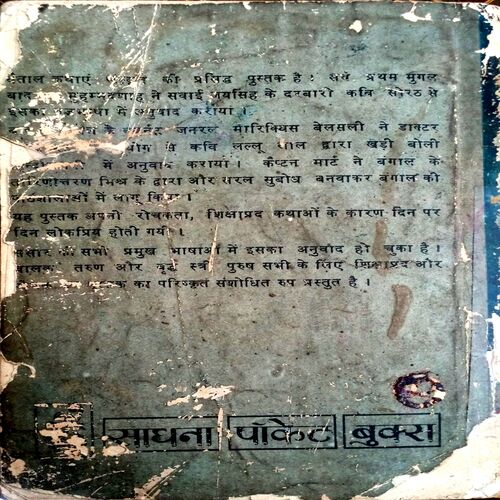 की प्रसिद्ध पुस्तक है : प्रथम मुगल
मुहम्मदशाह ने सवाई जयसिंह के दरबारी कवि सोरठ से
इसका में अनुवाद कराया ।
जनरल मारिक्विस बेलसली ने डाक्टर
से कवि लल्लू लाल द्वारा खड़ी बोली
में अनुवाद कराया । कैप्टन मार्ट ने बंगाल के
मिश्र के द्वारा और सरल सुबोध बनवाकर बंगाल की
में लागू किया ।
यह पुस्तक अपनी रोचकता, शिक्षाप्रद कथाओं के कारण दिन पर
दिन लोकप्रिय होती गयी ।
संसार की सभी प्रमुख भाषाओं में इसका अनुवाद हो चुका है ।
बालक तरुण और बूढ़े स्त्री पुरुष सभी के लिए शिक्षाप्रद और
का परिष्कृत संशोधित रुप प्रस्तुत है ।
साधना पॉकेट बुक्स